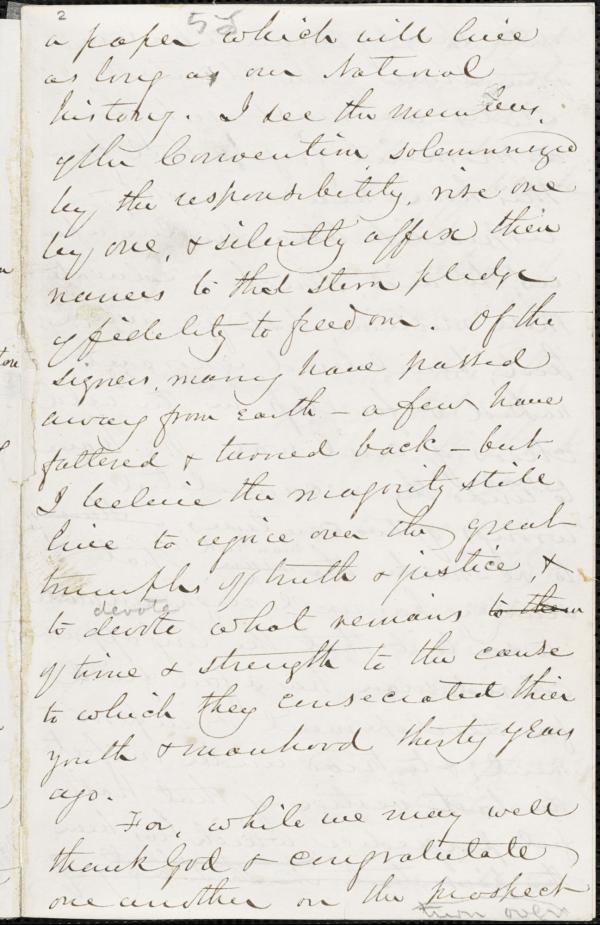 2
58
a paper which will live
as long as our National
history. I see the members,
of the Convention, solemnized
by the responsibility, rise one
by one, & silently affix their
names to that stern pledge
of fidelity to freedom. Of the
signers, many have passed
away from earth – a few have
faltered & turned back – but
I believe the majority still
live to rejoice over the great
triumphs of truth & justice, &
devote
to devote what remains to them
of time & strength to the cause
to which they consecrated thier
youth & manhood thirty years
ago.
For, while we may well
thank God & congratulate
one another on the prospect
turn over